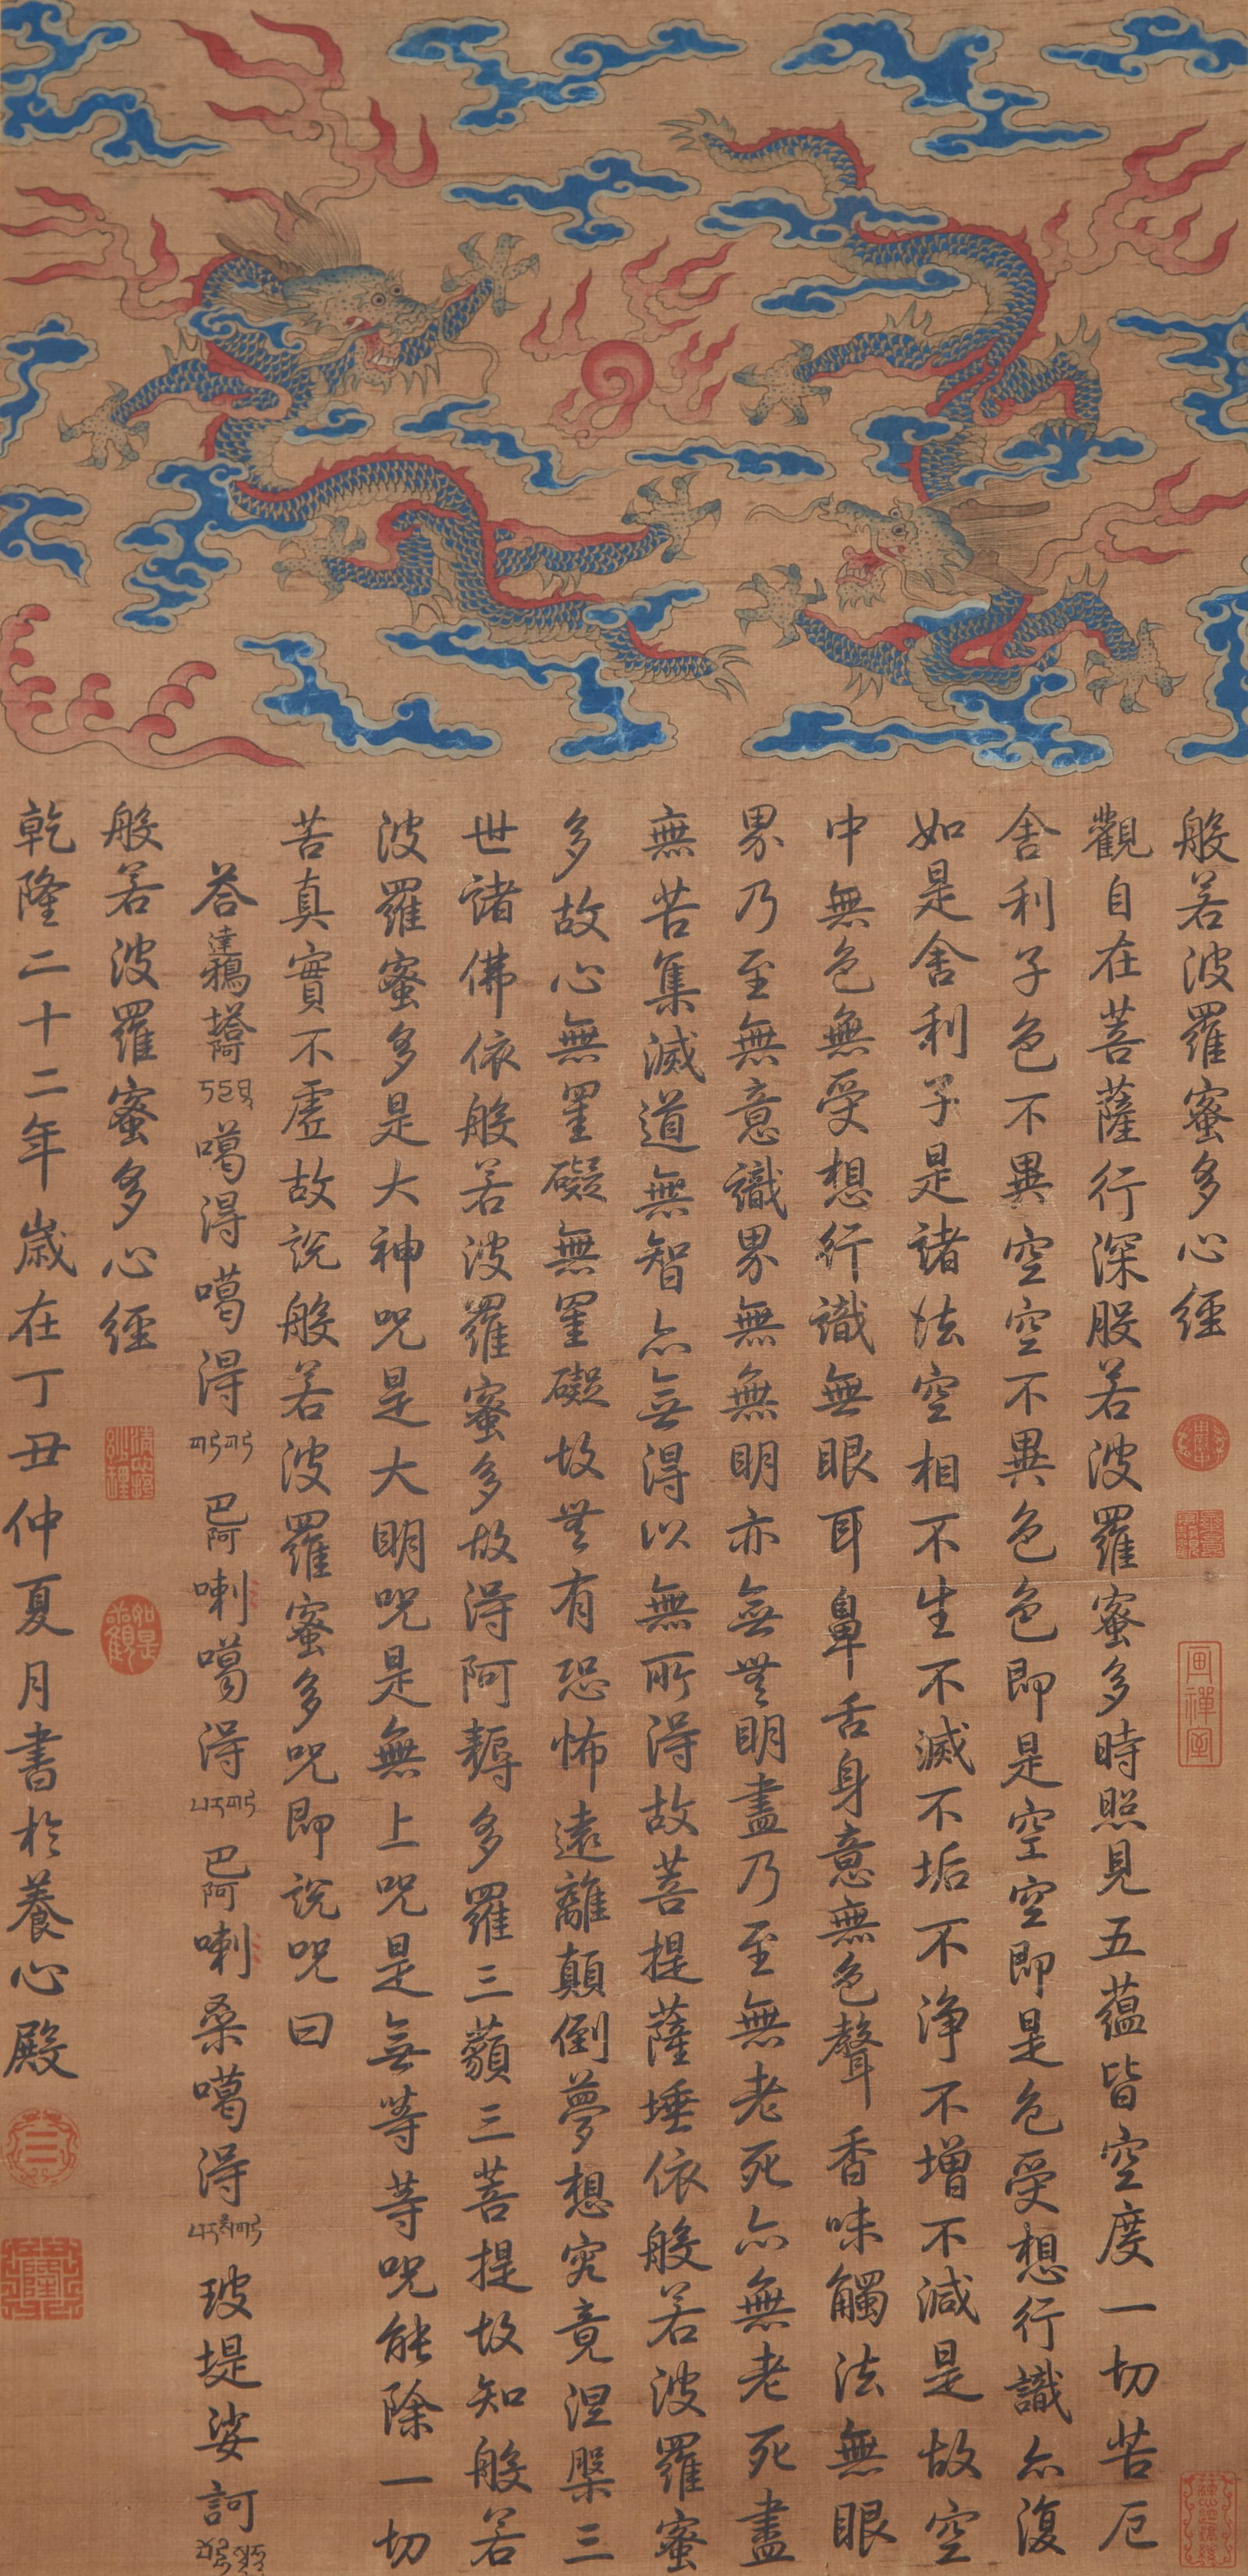 般若波羅蜜多心經
觀自在菩薩行深般若波羅蜜多時照見五蘊皆空度一切苦厄
舍利子色不異空空不異色色即是空空即是色受想行識亦復
如是舍利子是諸法空相不生不滅不垢不净不增不減是故空
中無色無受想行識無眼耳鼻舌身意無色聲香味觸法無眼
界乃至無意識界無無明亦無無明盡乃至無老死亦無老死盡
無苦集滅道無智亦無得以無所得故菩提薩埵依般若波羅蜜
多故心無罣礙無罣礙故無有恐怖遠離顛倒夢想究竟涅槃三
世諸佛依般若波羅蜜多故得阿耨多羅三藐三菩提故知般若
波羅蜜多是大神咒是大明咒是無上咒是無等等咒能除一切
苦真實不虛故說般若波羅蜜多咒即說咒曰
答達鴉塔阿噶得噶得巴阿喇噶得巴阿喇桑噶得玻堤娑訶
般若波羅蜜多心經
乾隆二十二年歲在丁丑仲夏月書於養心殿
畫禪室
如是觀